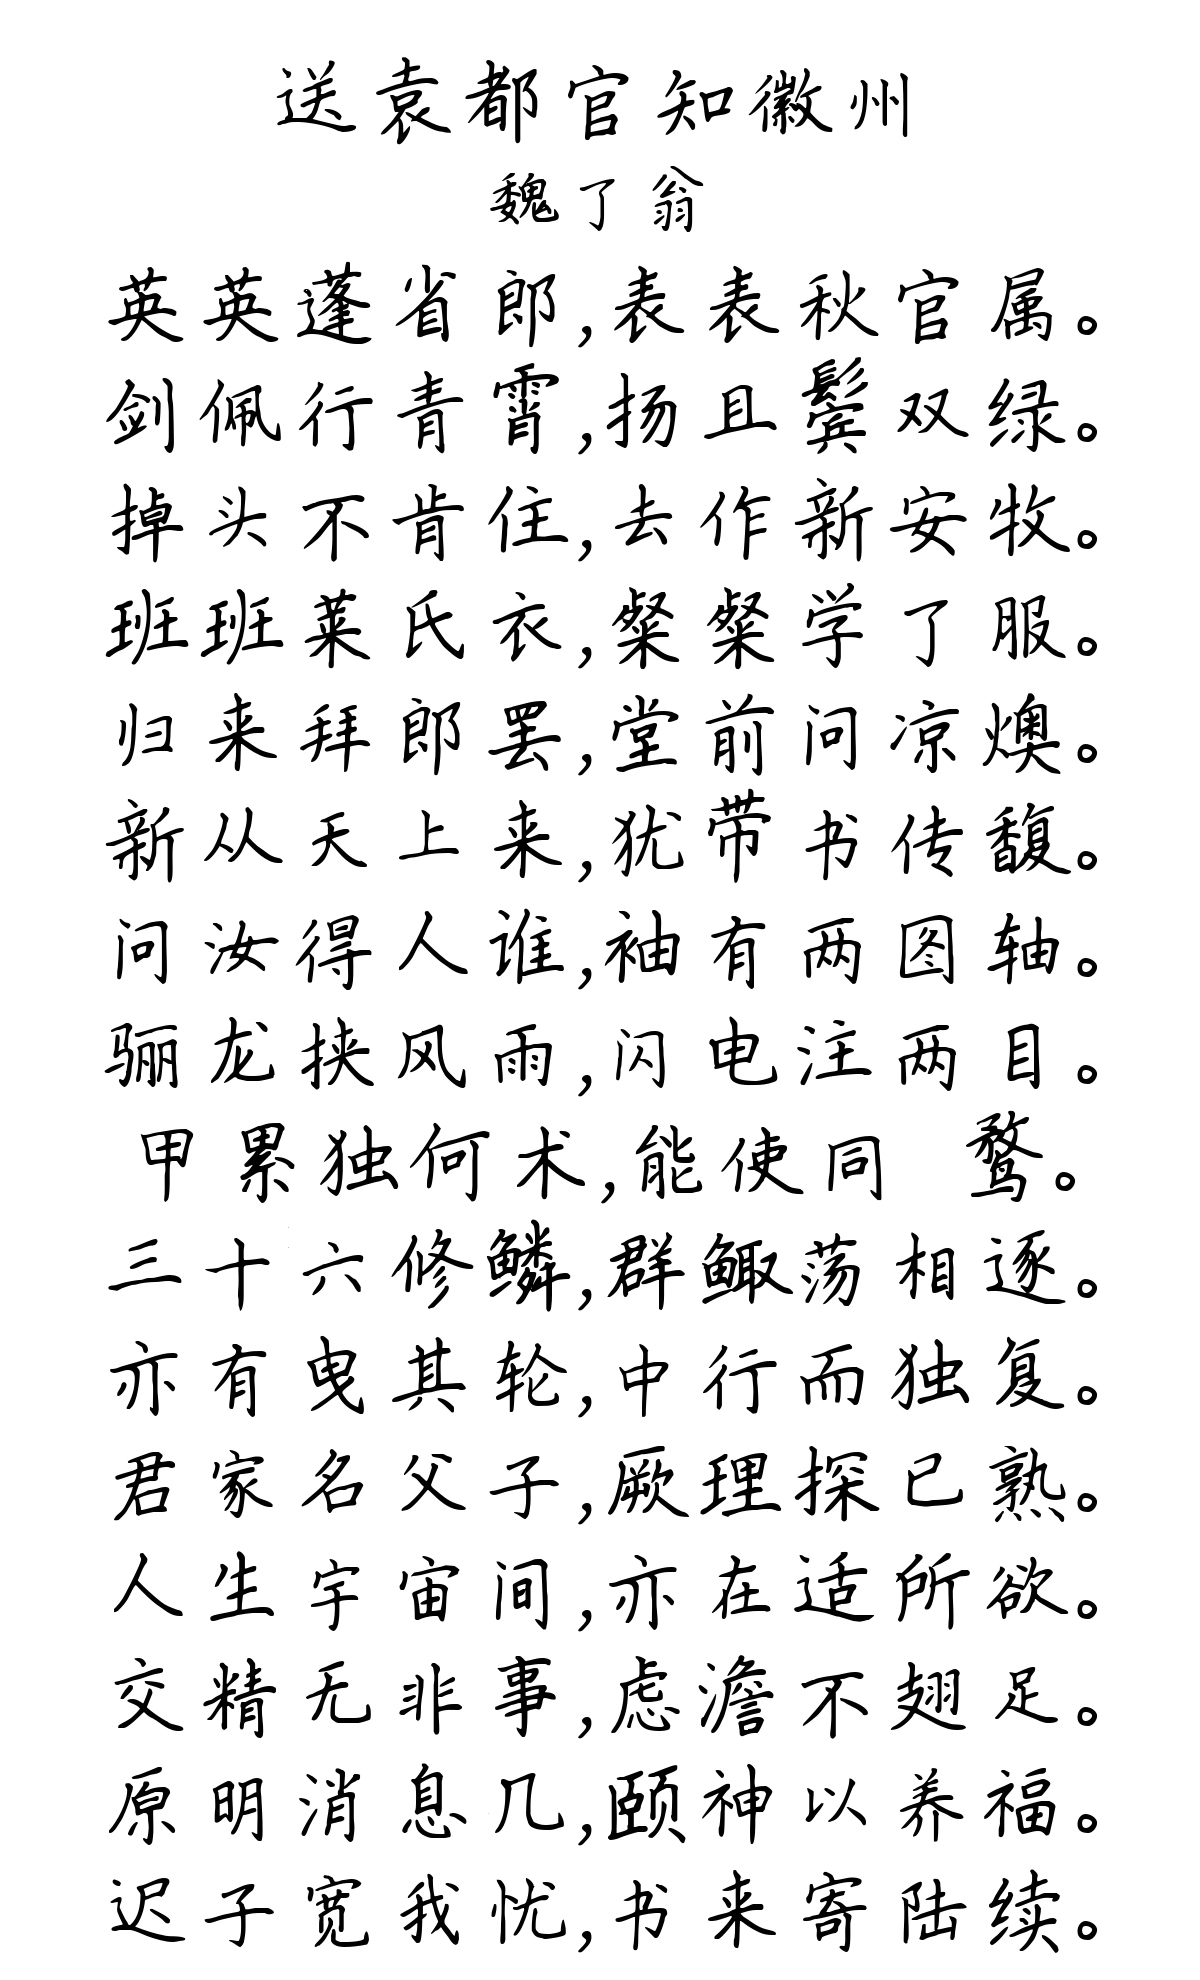 送袁都官知徽州
魏了翁
英英蓬省郎,表表秋官属。
剑佩行青霄,扬且鬓双绿。
掉头不肯住,去作新安牧。
班班莱氏衣,粲粲学了服。
归来拜郎罢,堂前问凉燠。
新从天上来,犹带书传馥。
问汝得人谁,袖有两图轴。
骊龙挟风雨,闪电注两目。
甲累独何术,能使同 鹜。
三十六修鳞,群鲰荡相逐。
亦有曳其轮,中行而独复。
君家名父子,厥理探已熟。
人生宇宙间,亦在适所欲。
交精无非事,虑澹不翅足。
原明消息几,颐神以养福。
迟子宽我忧,书来寄陆续。